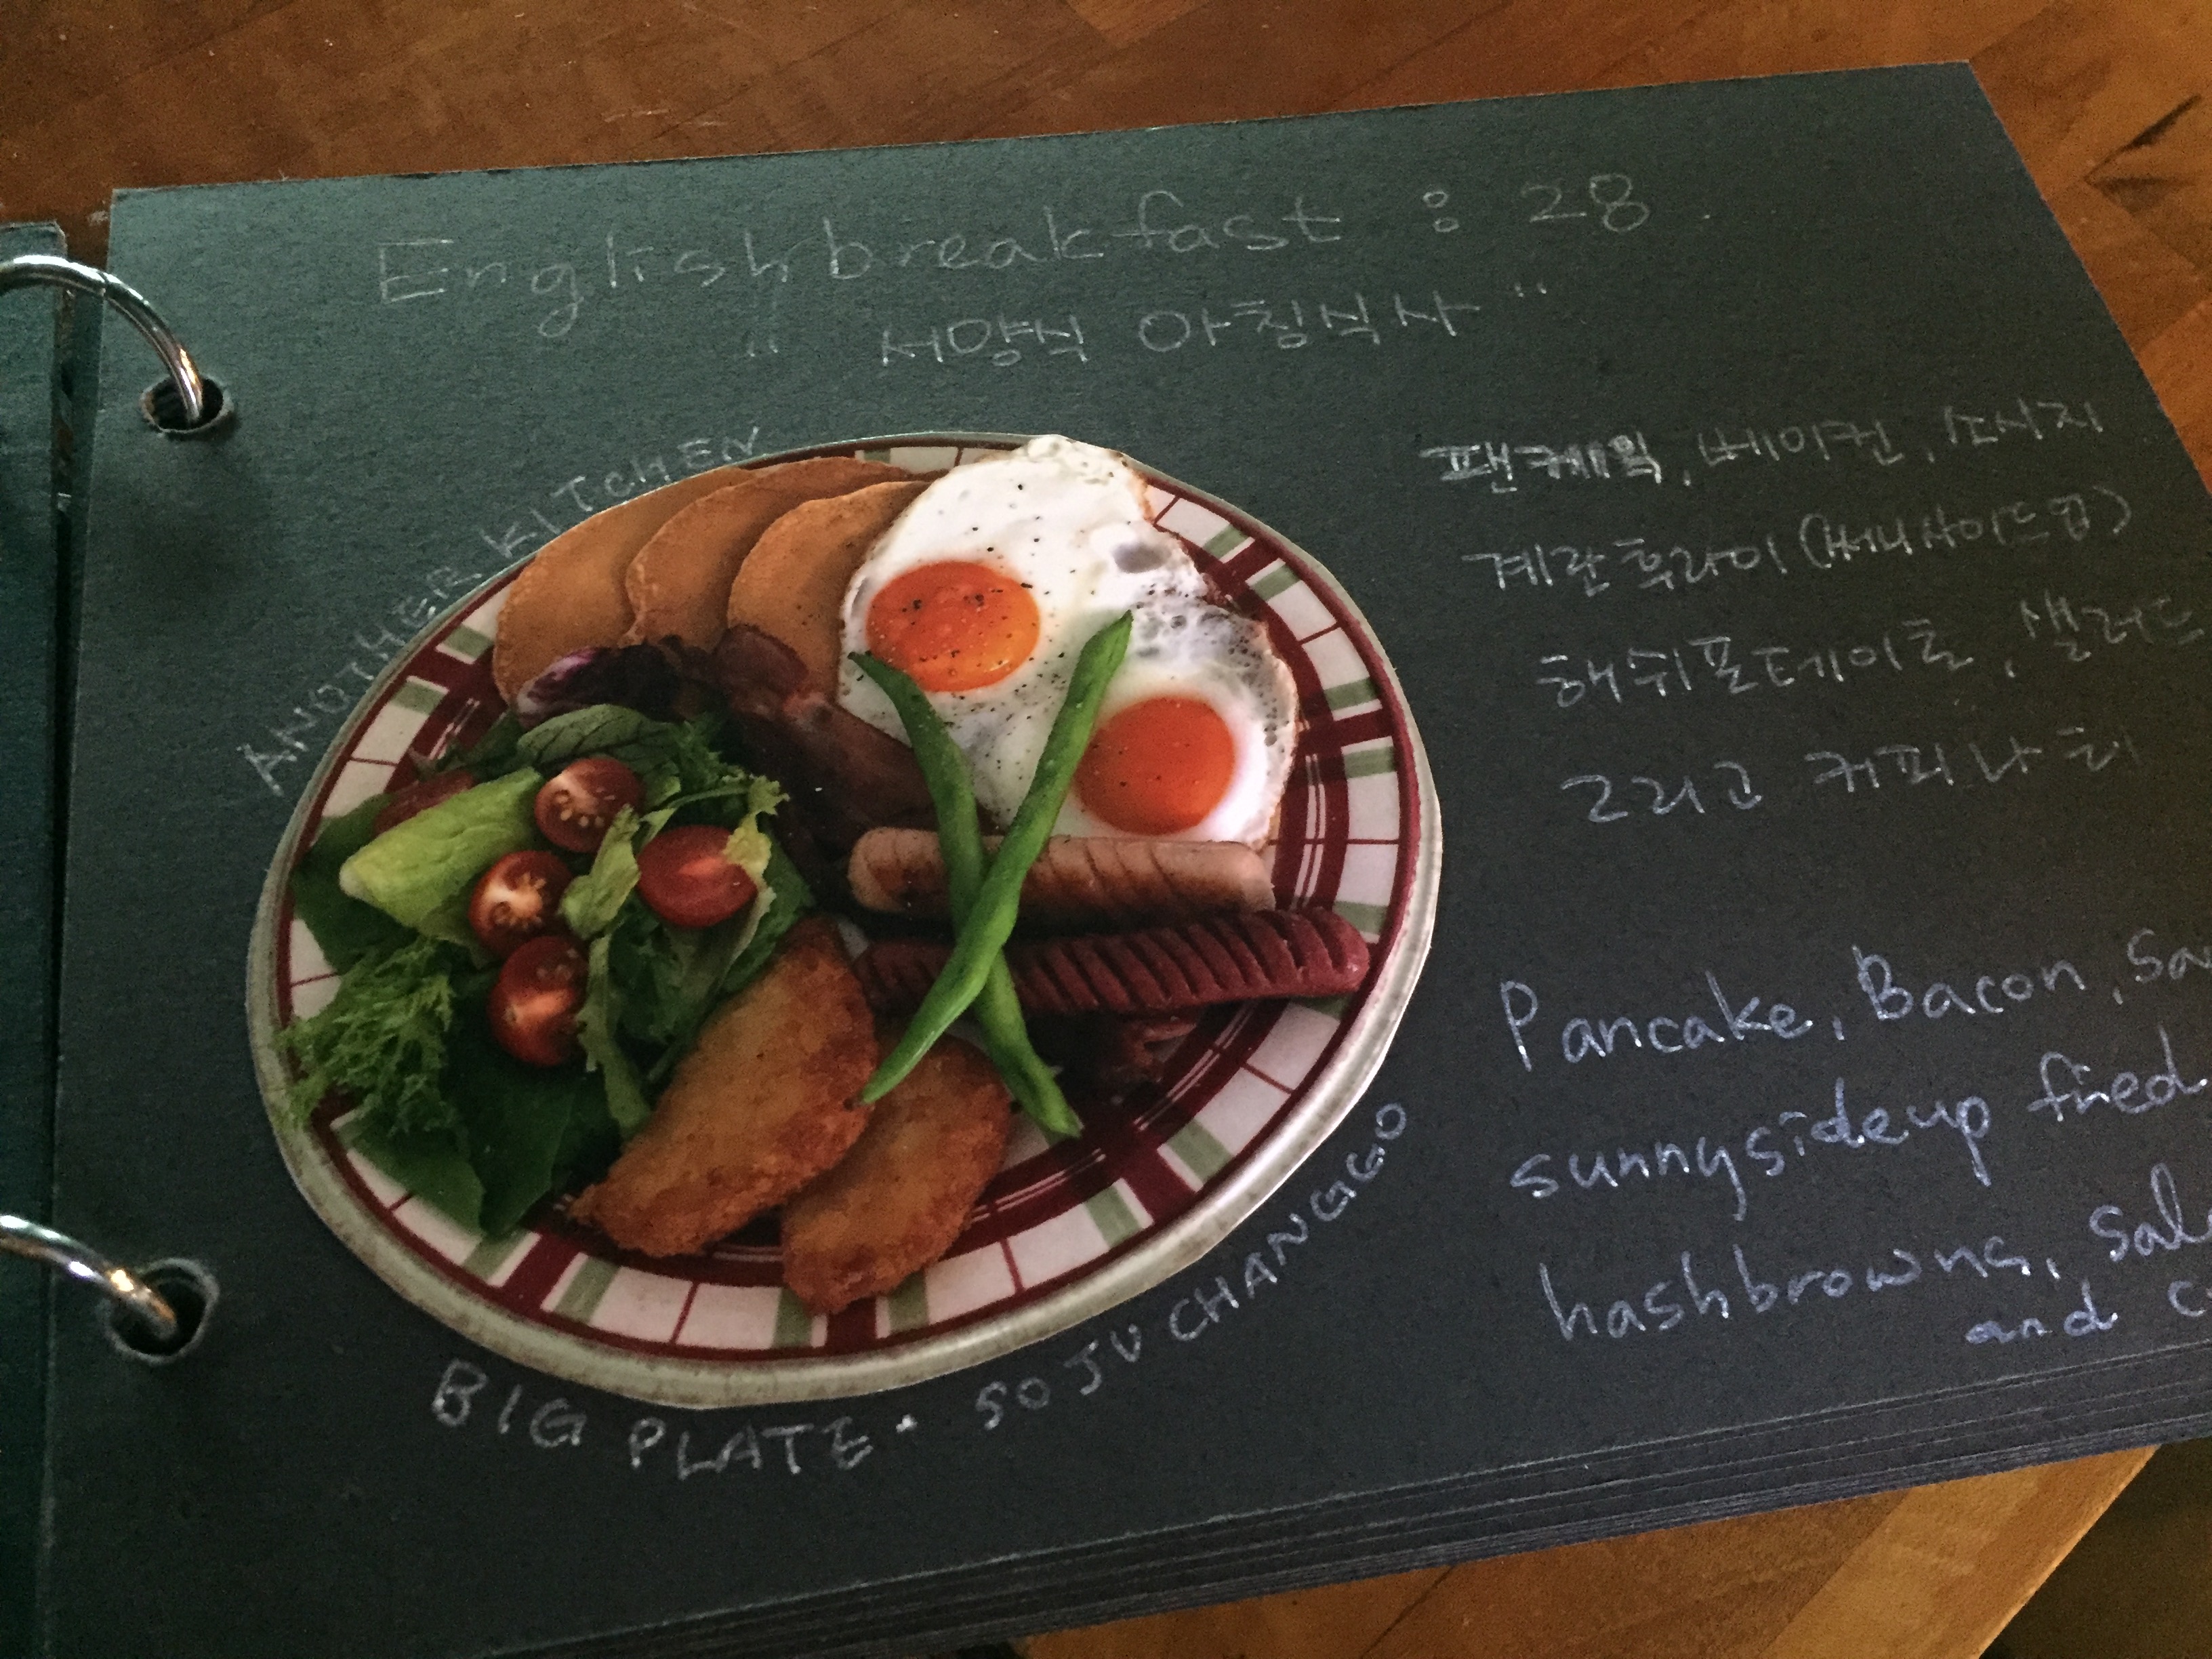 English breakfast : 28
" 서양식 아침식사 "
ANOTHER KITCHEN
팬케익, 베이컨, 소시지
계란후라이(써니사이드업)
해쉬포테이토, 샐러드
그리고 커피나
Pancake, Bacon,
sunnysideup fried
hashbrowns,
and
BIG PLATE. SOJU CHANGGO